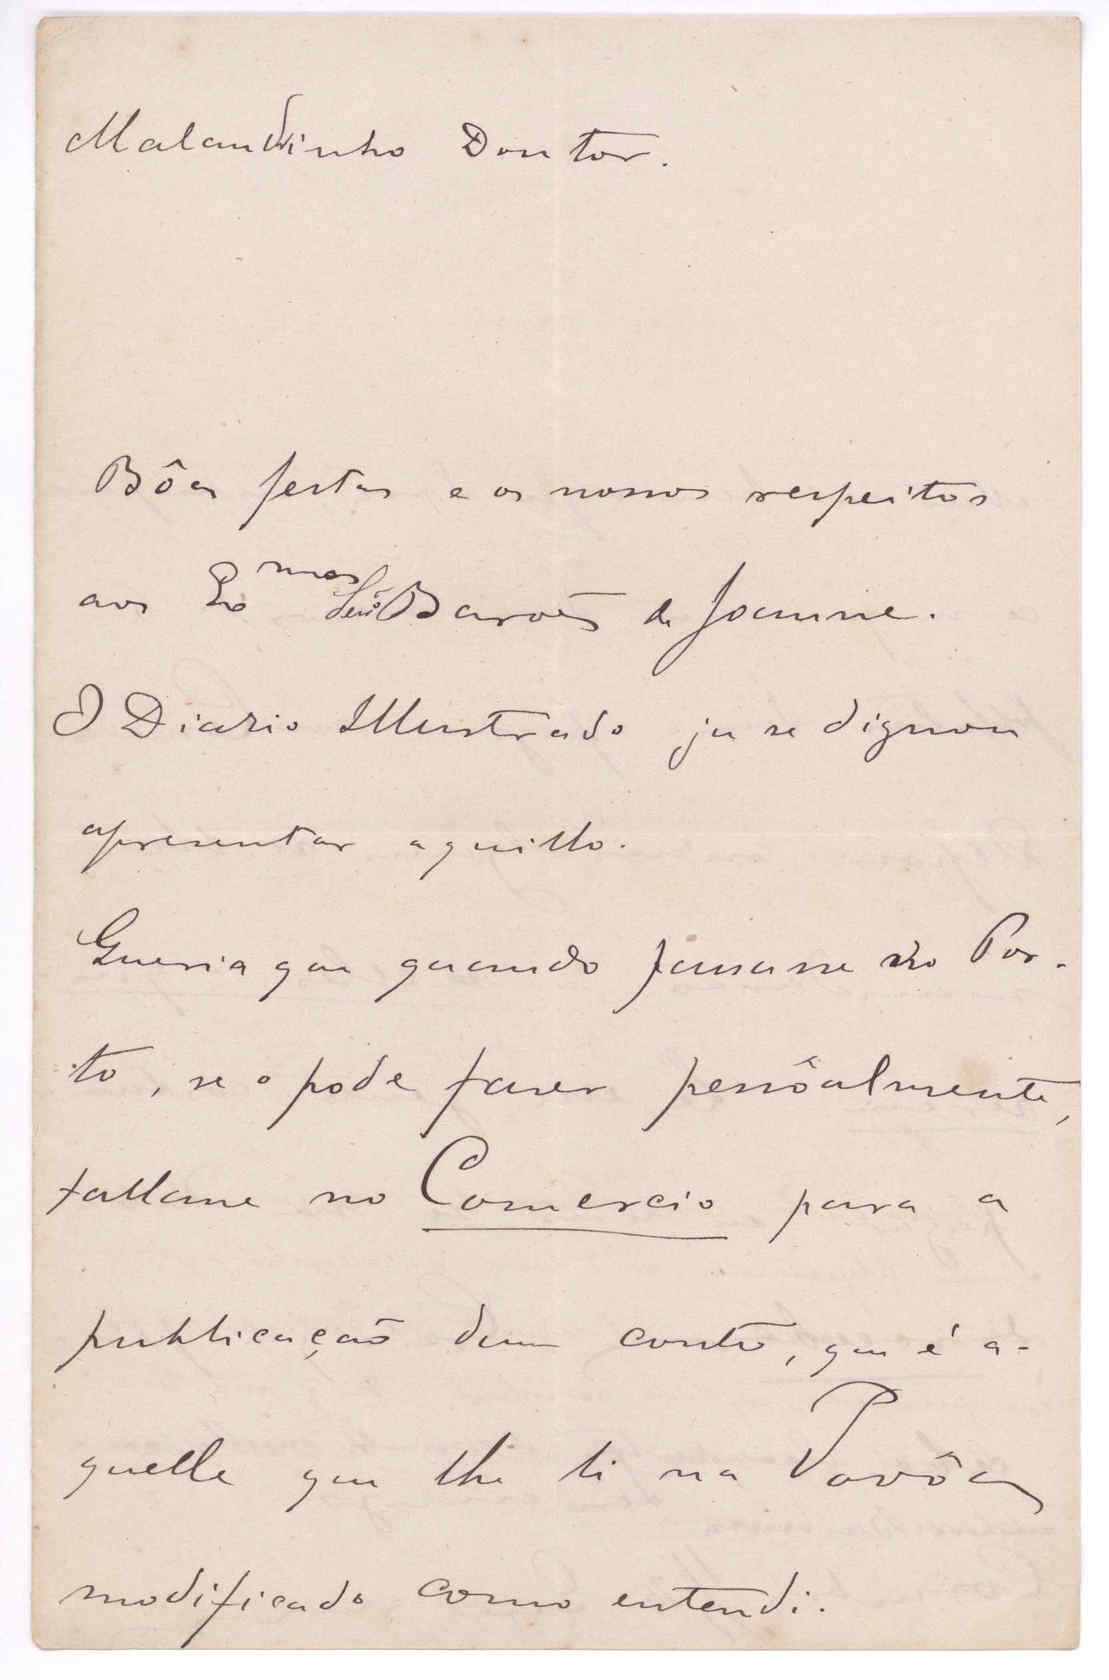 Malandrinho Doutor.
Bôas festas e os nossos respeitos
aos Ex^mos Senr^es Barões de Joanne.
O Diario Illustrado ja se dignou
apresentar aquillo.
Queria que quando passasse no Por-
to, se o pode faser pessôalmente,
fallasse no Comercio para a
publicação dum conto, que é a-
quelle que lhe li na Povôa
modificado como entendi.